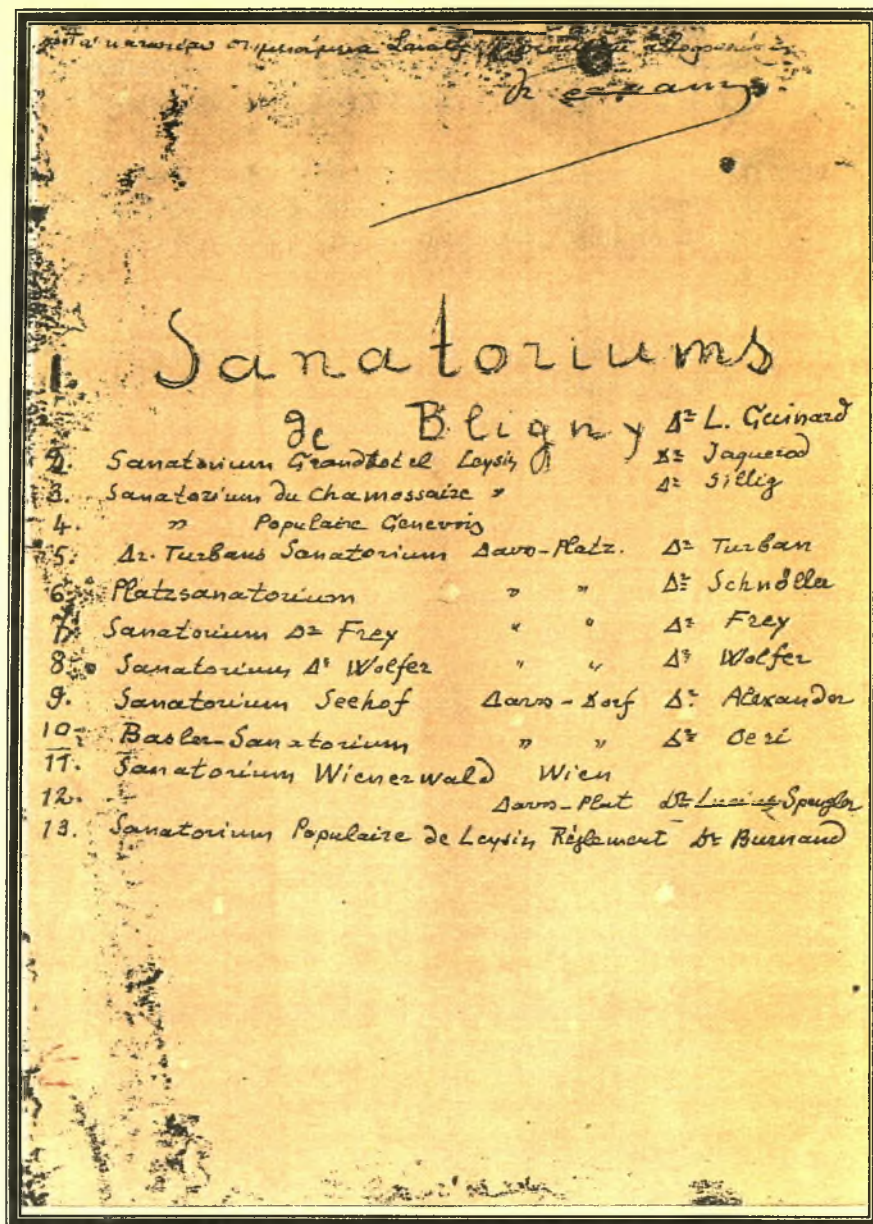 Τα κατωτέρω σημειούμενα
1 Sanatoriums
de Bligny Δr L. Guinard
2. Sanatorium Grandhotel Leysin Δr Jaquerod
3. Sanatorium du Chamossaire " Δr Sillig
4. " Populaire Genevois
5. Δr. Turbans Sanatorium Davos-Platz. Δr Turban
6. Platzsanatorium " " Δr Schnöller
7. Sanatorium Δr Frey " " Δr Frey
8. Sanatorium Δr Wolfer " " Δr Wolfer
9. Sanatorium Seehof Davos-Dorf Δr. Alexander
10. Basler-Sanatorium " " Δr Oeri
11. Sanatorium Wienerwald Wien
12. Davos-Plat Dr Lucius Spengler
13. Sanatorium Populaire de Leysin Règlement Dr Burnand